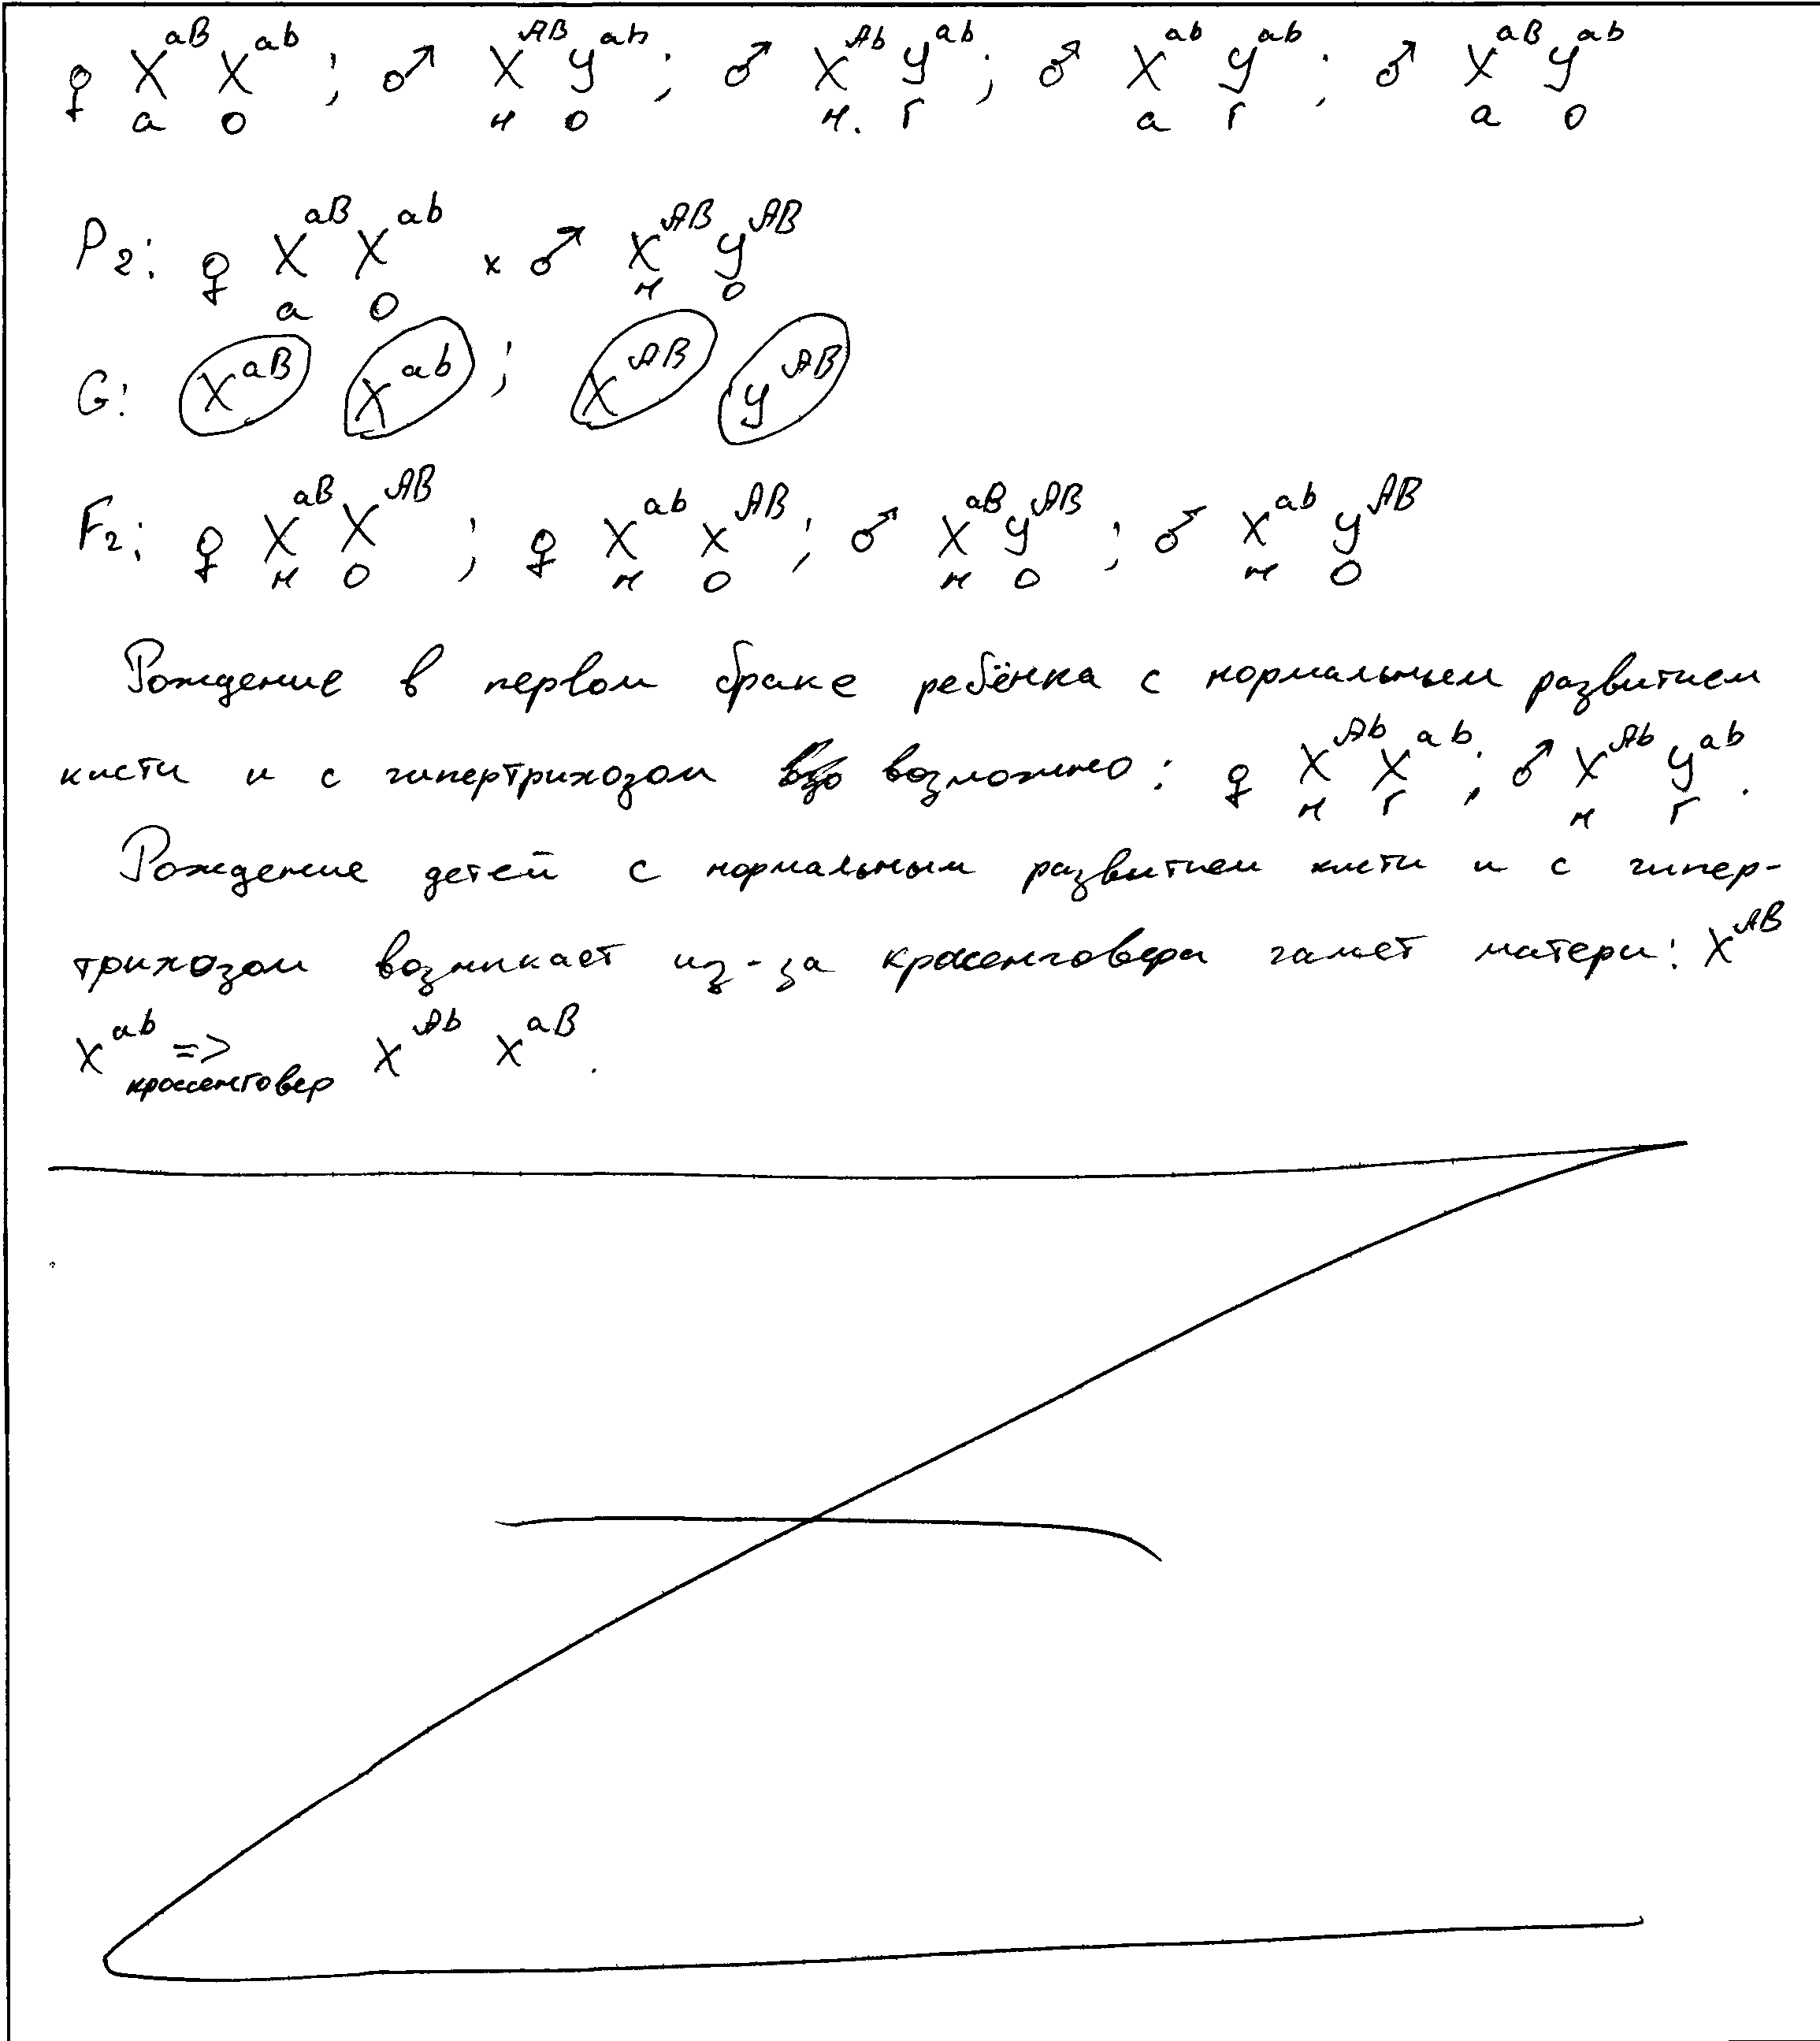 ♀ X^aB X^ab ; ♂ X^AB Y^ab ; ♂ X^Ab Y^ab ; ♂ X^ab Y^ab ; ♂ X^aB Y^ab
а о н о н. г а г а о
P₂: ♀ X^aB X^ab × ♂ X^AB Y^AB
а о н о
G: X^aB X^ab ; X^AB Y^AB
F₂: ♀ X^aB X^AB ; ♀ X^ab X^AB ; ♂ X^aB Y^AB ; ♂ X^ab Y^AB
н о н о н о н о
Рождение в первом браке ребёнка с нормальным развитием
кисти и с гипертрихозом возможно: ♀ X^Ab X^ab ; ♂ X^Ab Y^ab .
н г н г
Рождение детей с нормальным развитием кисти и с гипер-
трихозом возникает из-за кроссенговера гамет матери: X^AB
X^ab => X^Ab X^aB .
кроссенговер